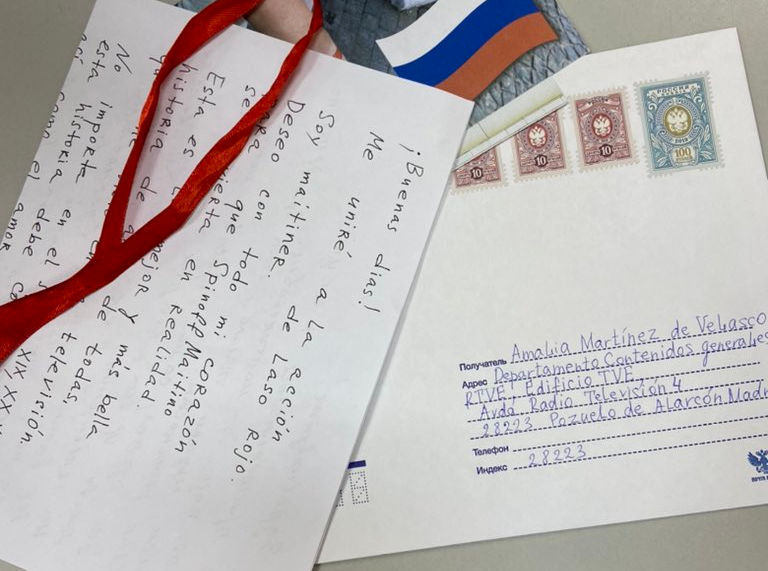 ¡Buenas dias!
Me uniré a La acción
de Laso Rojo.
Soy maitiner.
Deseo con todo mi corazón
para que Spinoff Maitino
se convierta en realidad.
Esta es mejor y más bella
historia de de todas,
televisión.
No importa en el
esta historia debe
como el amor XIX XX
10
10
10
100
Получатель Amalia Martínez de Velasco
Адрес Departamento Contenidos generales
RTVE, Edificio TVE
Avda Radio Televisión 4
28223 Pozuelo de Alarcón Madr
Телефон
Индекс 28223